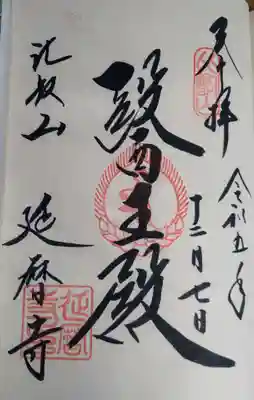 奉拝
令和五年
十二月七日
醫王殿
比叡山
延暦寺